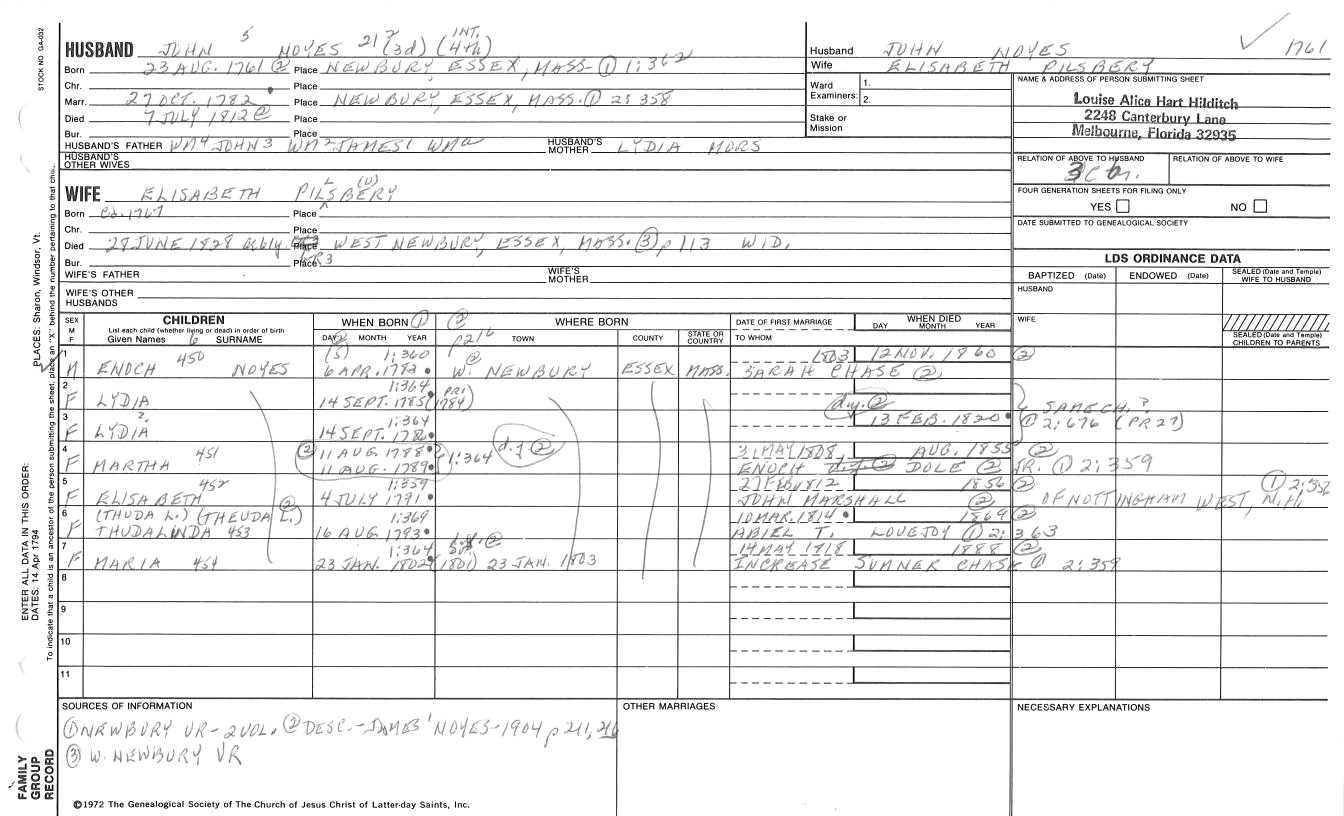 STOCK NO. GA-032
HUSBAND JOHN 5 NOYES 217 (3d) (4th) INT.
Born 23 AUG. 1761 ② Place NEWBURY, ESSEX, MASS- ① 1:362
Chr. Place
Marr. 27 OCT. 1782 Place NEWBURY, ESSEX, MASS. ① 2:358
Died 7 JULY 1812 ② Place
Bur. Place
HUSBAND'S FATHER WM4 JOHN3 WM2 JAMES1 WMa HUSBAND'S MOTHER LYDIA MORS
HUSBAND'S OTHER WIVES
WIFE ELISABETH PILSBERY L (U)
Born Cd. 1767 Place
Chr. Place
Died 29 JUNE 1828 Place WEST NEWBURY, ESSEX, MASS. ③ p 113 WID.
Bur. Place GR3
WIFE'S FATHER WIFE'S MOTHER
WIFE'S OTHER HUSBANDS
Husband JOHN NOYES 1761
Wife ELISABETH PILSBERY
Ward Examiners: 1. 2.
Stake or Mission
NAME & ADDRESS OF PERSON SUBMITTING SHEET
Louise Alice Hart Hilditch
2248 Canterbury Lane
Melbourne, Florida 32935
RELATION OF ABOVE TO HUSBAND RELATION OF ABOVE TO WIFE
FOUR GENERATION SHEETS FOR FILING ONLY
YES NO
DATE SUBMITTED TO GENEALOGICAL SOCIETY
LDS ORDINANCE DATA
BAPTIZED (Date) ENDOWED (Date) SEALED (Date and Temple) WIFE TO HUSBAND
HUSBAND
WIFE
SEALED (Date and Temple) CHILDREN TO PARENTS
SEX M F CHILDREN WHEN BORN ① ② WHERE BORN DATE OF FIRST MARRIAGE WHEN DIED
List each child (whether living or dead) in order of birth
Given Names 6 SURNAME DAY MONTH YEAR p 216 TOWN COUNTY STATE OR COUNTRY TO WHOM DAY MONTH YEAR
1 450 (5) 1:360 ② 1803 12 NOV. 1860 ②
M ENOCH NOYES 6 APR. 1782 W. NEWBURY ESSEX MASS. SARAH CHASE ②
2 1:364 PR1
F LYDIA 14 SEPT. 1785 (1784) d.y. ② SAME CH. ?
3 ? 1:364 13 FEB. 1820 ① 2:676 (PR27)
F LYDIA 14 SEPT. 1786
4 451 ② 11 AUG. 1788 d.y ② 31 MAY 1808 AUG. 1855 ②
F MARTHA 11 AUG. 1789 1:364 ENOCH DOLE ② JR. ① 2:359
5 452 1:359 27 FEB 1812 1856 ② ① 2:356
F ELISABETH 4 JULY 1791 JOHN MARSHALL ② OF NOTTINGHAM WEST, N.H.
6 (THUDA L.) (THEUDA L.) ② 1:364 10 MAR. 1814 1869 ②
F THUDALINDA 453 16 AUG. 1793 ABIEL T. LOVEJOY ① 2:363
7 1:364 ② 14 MAY 1818 1888 ②
F MARIA 454 23 JAN. 1802 (1801) 23 JAN. 1803 INCREASE SUMNER CHASE ① 2:359
8
9
10
11
SOURCES OF INFORMATION OTHER MARRIAGES NECESSARY EXPLANATIONS
① NEWBURY VR - 2 VOL. ② DESC. - JAMES' NOYES - 1904 p 211, 216
③ W. NEWBURY VR
©1972 The Genealogical Society of The Church of Jesus Christ of Latter-day Saints, Inc.
FAMILY GROUP RECORD
ENTER ALL DATA IN THIS ORDER:
DATES: 14 Apr 1794
PLACES: Sharon, Windsor, Vt.
To indicate that a child is an ancestor of the person submitting the sheet, place an "X" behind the number pertaining to that child.